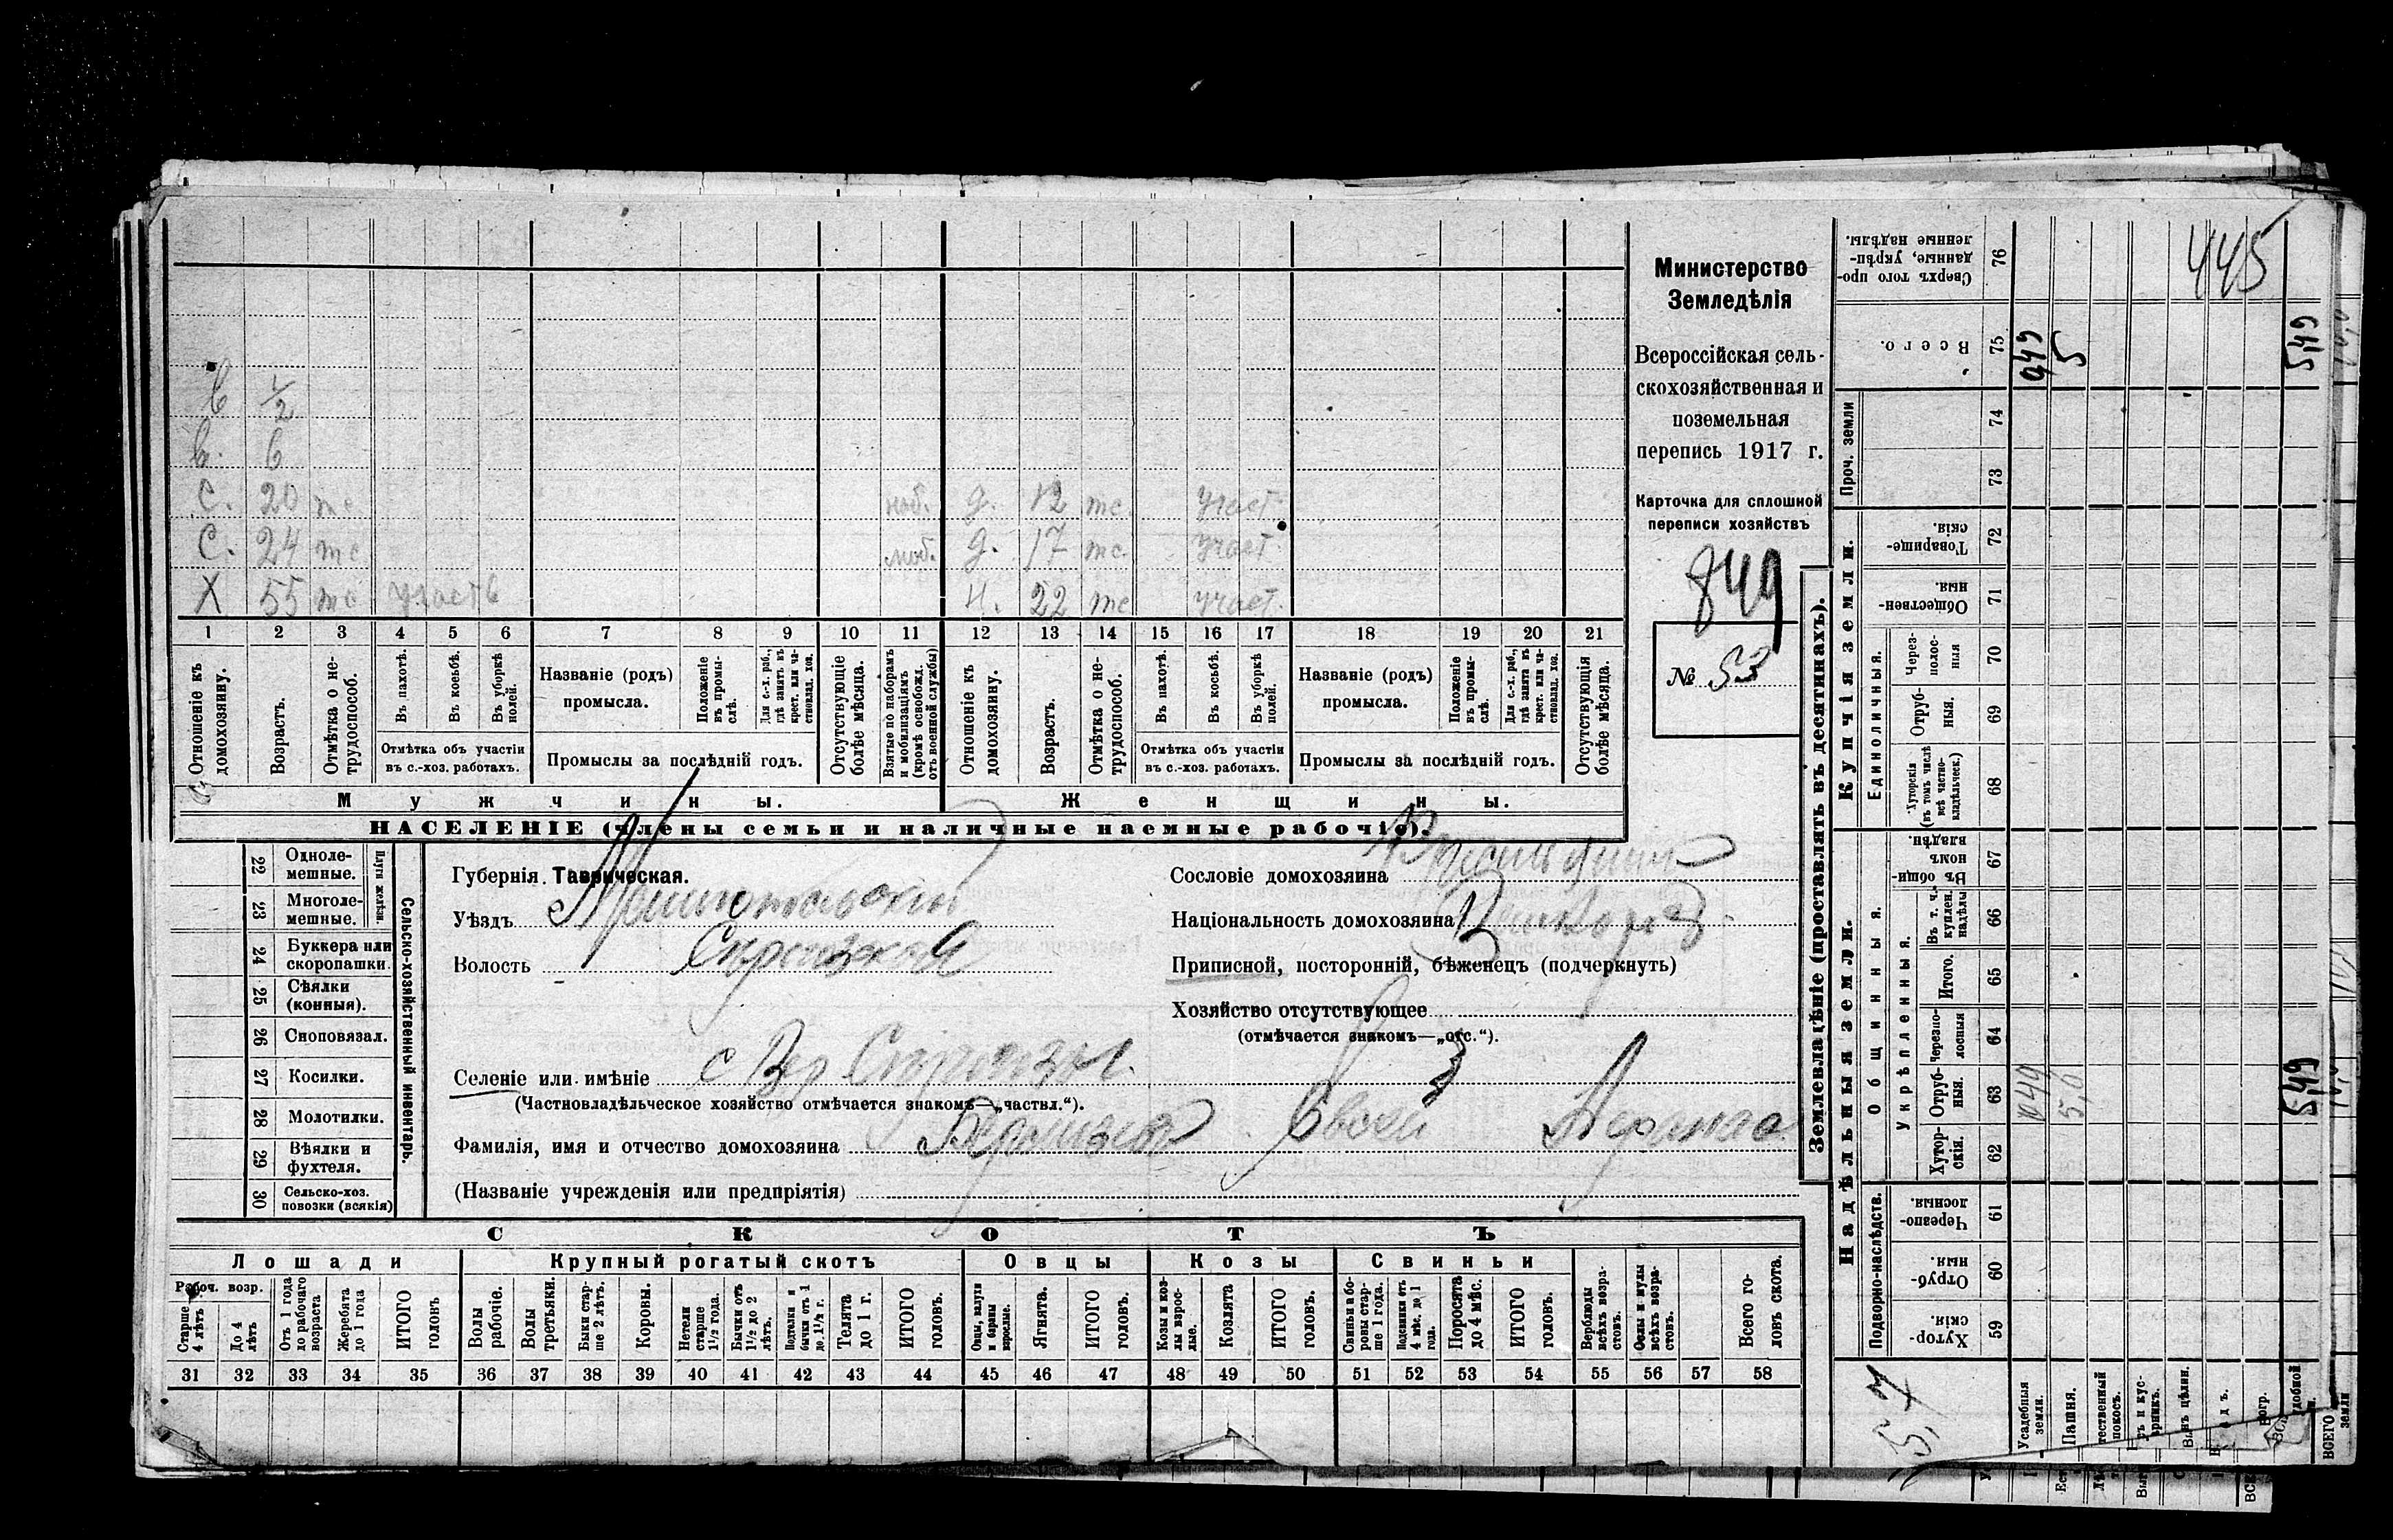 в 1/2
в. 6
с. 20 тс наб. д. 12 тс. участ.
с. 24 тс моб. д. 17 тс. участ.
Х 55 тс участв н. 22 тс участ.
1 2 3 4 5 6 7 8 9 10 11 12 13 14 15 16 17 18 19 20 21
Отношеніе къ домохозяину.
Возрастъ.
Отмѣтка о не-трудоспособ.
Въ пахотѣ.
Въ косьбѣ.
Въ уборкѣ полей.
Отмѣтка объ участіи
въ с.-хоз. работахъ.
Названіе (родъ)
промысла.
Положеніе въ промы-слѣ.
Для с.-х. раб., гдѣ занятъ въ крест. или ча-стновлад. хоз.
Промыслы за послѣдній годъ.
Отсутствующіе болѣе мѣсяца.
Взятые по наборамъ и мобилизаціямъ (кромѣ освобожд. отъ военной службы)
Отношеніе къ домохозяину.
Возрастъ.
Отмѣтка о не-трудоспособ.
Въ пахотѣ.
Въ косьбѣ.
Въ уборкѣ полей.
Отмѣтка объ участіи
въ с.-хоз. работахъ.
Названіе (родъ)
промысла.
Положеніе въ промы-слѣ.
Для с.-х. раб., гдѣ занята въ крест. или ча-стновлад. хоз.
Промыслы за послѣдній годъ.
Отсутствующія болѣе мѣсяца.
Мужчины.
Женщины.
НАСЕЛЕНІЕ (члены семьи и наличные наемные рабочіе).
Министерство
Земледѣлія
Всероссійская сель-
скохозяйственная и
поземельная
перепись 1917 г.
Карточка для сплошной
переписи хозяйствъ
849
№ 53
22 Одноле-мешные.
23 Многоле-мешные.
24 Буккера или скоропашки.
25 Сѣялки (конныя).
26 Сноповязал.
27 Косилки.
28 Молотилки.
29 Вѣялки и фухтеля.
30 Сельско-хоз. повозки (всякія)
Сельско-хозяйственный инвентарь.
Губернія Таврическая.
Уѣздъ Мелитопольскій
Волость Сирогозская
Селеніе или имѣніе с Вер Сирогозы
(Частновладѣльческое хозяйство отмѣчается знакомъ—„частвл.“).
Фамилія, имя и отчество домохозяина Евсей
(Названіе учрежденія или предпріятія)
Сословіе домохозяина
Національность домохозяина
Приписной, посторонній, бѣженецъ (подчеркнуть)
Хозяйство отсутствующее
(отмѣчается знакомъ—„отс.“).
СКОТЪ
Лошади Крупный рогатый скотъ Овцы Козы Свиньи
Рабоч. возр.
Старше 4 лѣтъ
До 4 лѣтъ
Отъ 1 года до рабочаго возраста
Жеребята до 1 года
ИТОГО головъ
Волы рабочіе.
Волы третьяки.
Быки стар-ше 2 лѣтъ.
Коровы.
Нетели старше 1½ года.
Бычки отъ 1½ до 2 лѣтъ.
Подтелки и бычки отъ 1 до 1½ г.
Телята до 1 г.
ИТОГО головъ.
Овцы, валухи и бараны взрослые.
Ягнята.
ИТОГО головъ.
Козы и коз-лы взрос-лые.
Козлята
ИТОГО головъ.
Свиньи и бо-ровы стар-ше 1 года.
Подсвинки отъ 4 мѣс. до 1 года.
Поросята до 4 мѣс.
ИТОГО головъ.
Верблюды всѣхъ возра-стовъ.
Ослы и мулы всѣхъ возра-стовъ.
Всего го-ловъ скота.
31 32 33 34 35 36 37 38 39 40 41 42 43 44 45 46 47 48 49 50 51 52 53 54 55 56 57 58
Землевладѣніе (проставлять въ десятинахъ).
Надѣльныя земли.
Купчія земли.
Проч. земли
Подворно-наслѣдств.
Общинныя.
Укрѣпленныя.
Единоличныя.
Хутор-скія. 59
Отруб-ныя. 60
Черезпо-лосныя 61
Хутор-скія. 62
Отруб-ныя. 63
Черезпо-лосныя 64
Итого. 65
Въ т. ч. куплен. надѣлы 66
Въ общи-номъ владѣн. 67
Хуторскія (въ томъ числѣ всѣ частно-владѣльческ.) 68
Отруб-ныя. 69
Через-полос-ныя 70
Обществен-ныя. 71
Товарище-скія. 72
73
74
Всего. 75
Сверхъ того про-данные, укрѣп-ленные надѣлы. 76
Усадебныя земли.
Пашня.
445
0,49
5
5,49
0,49
5,0
5,49